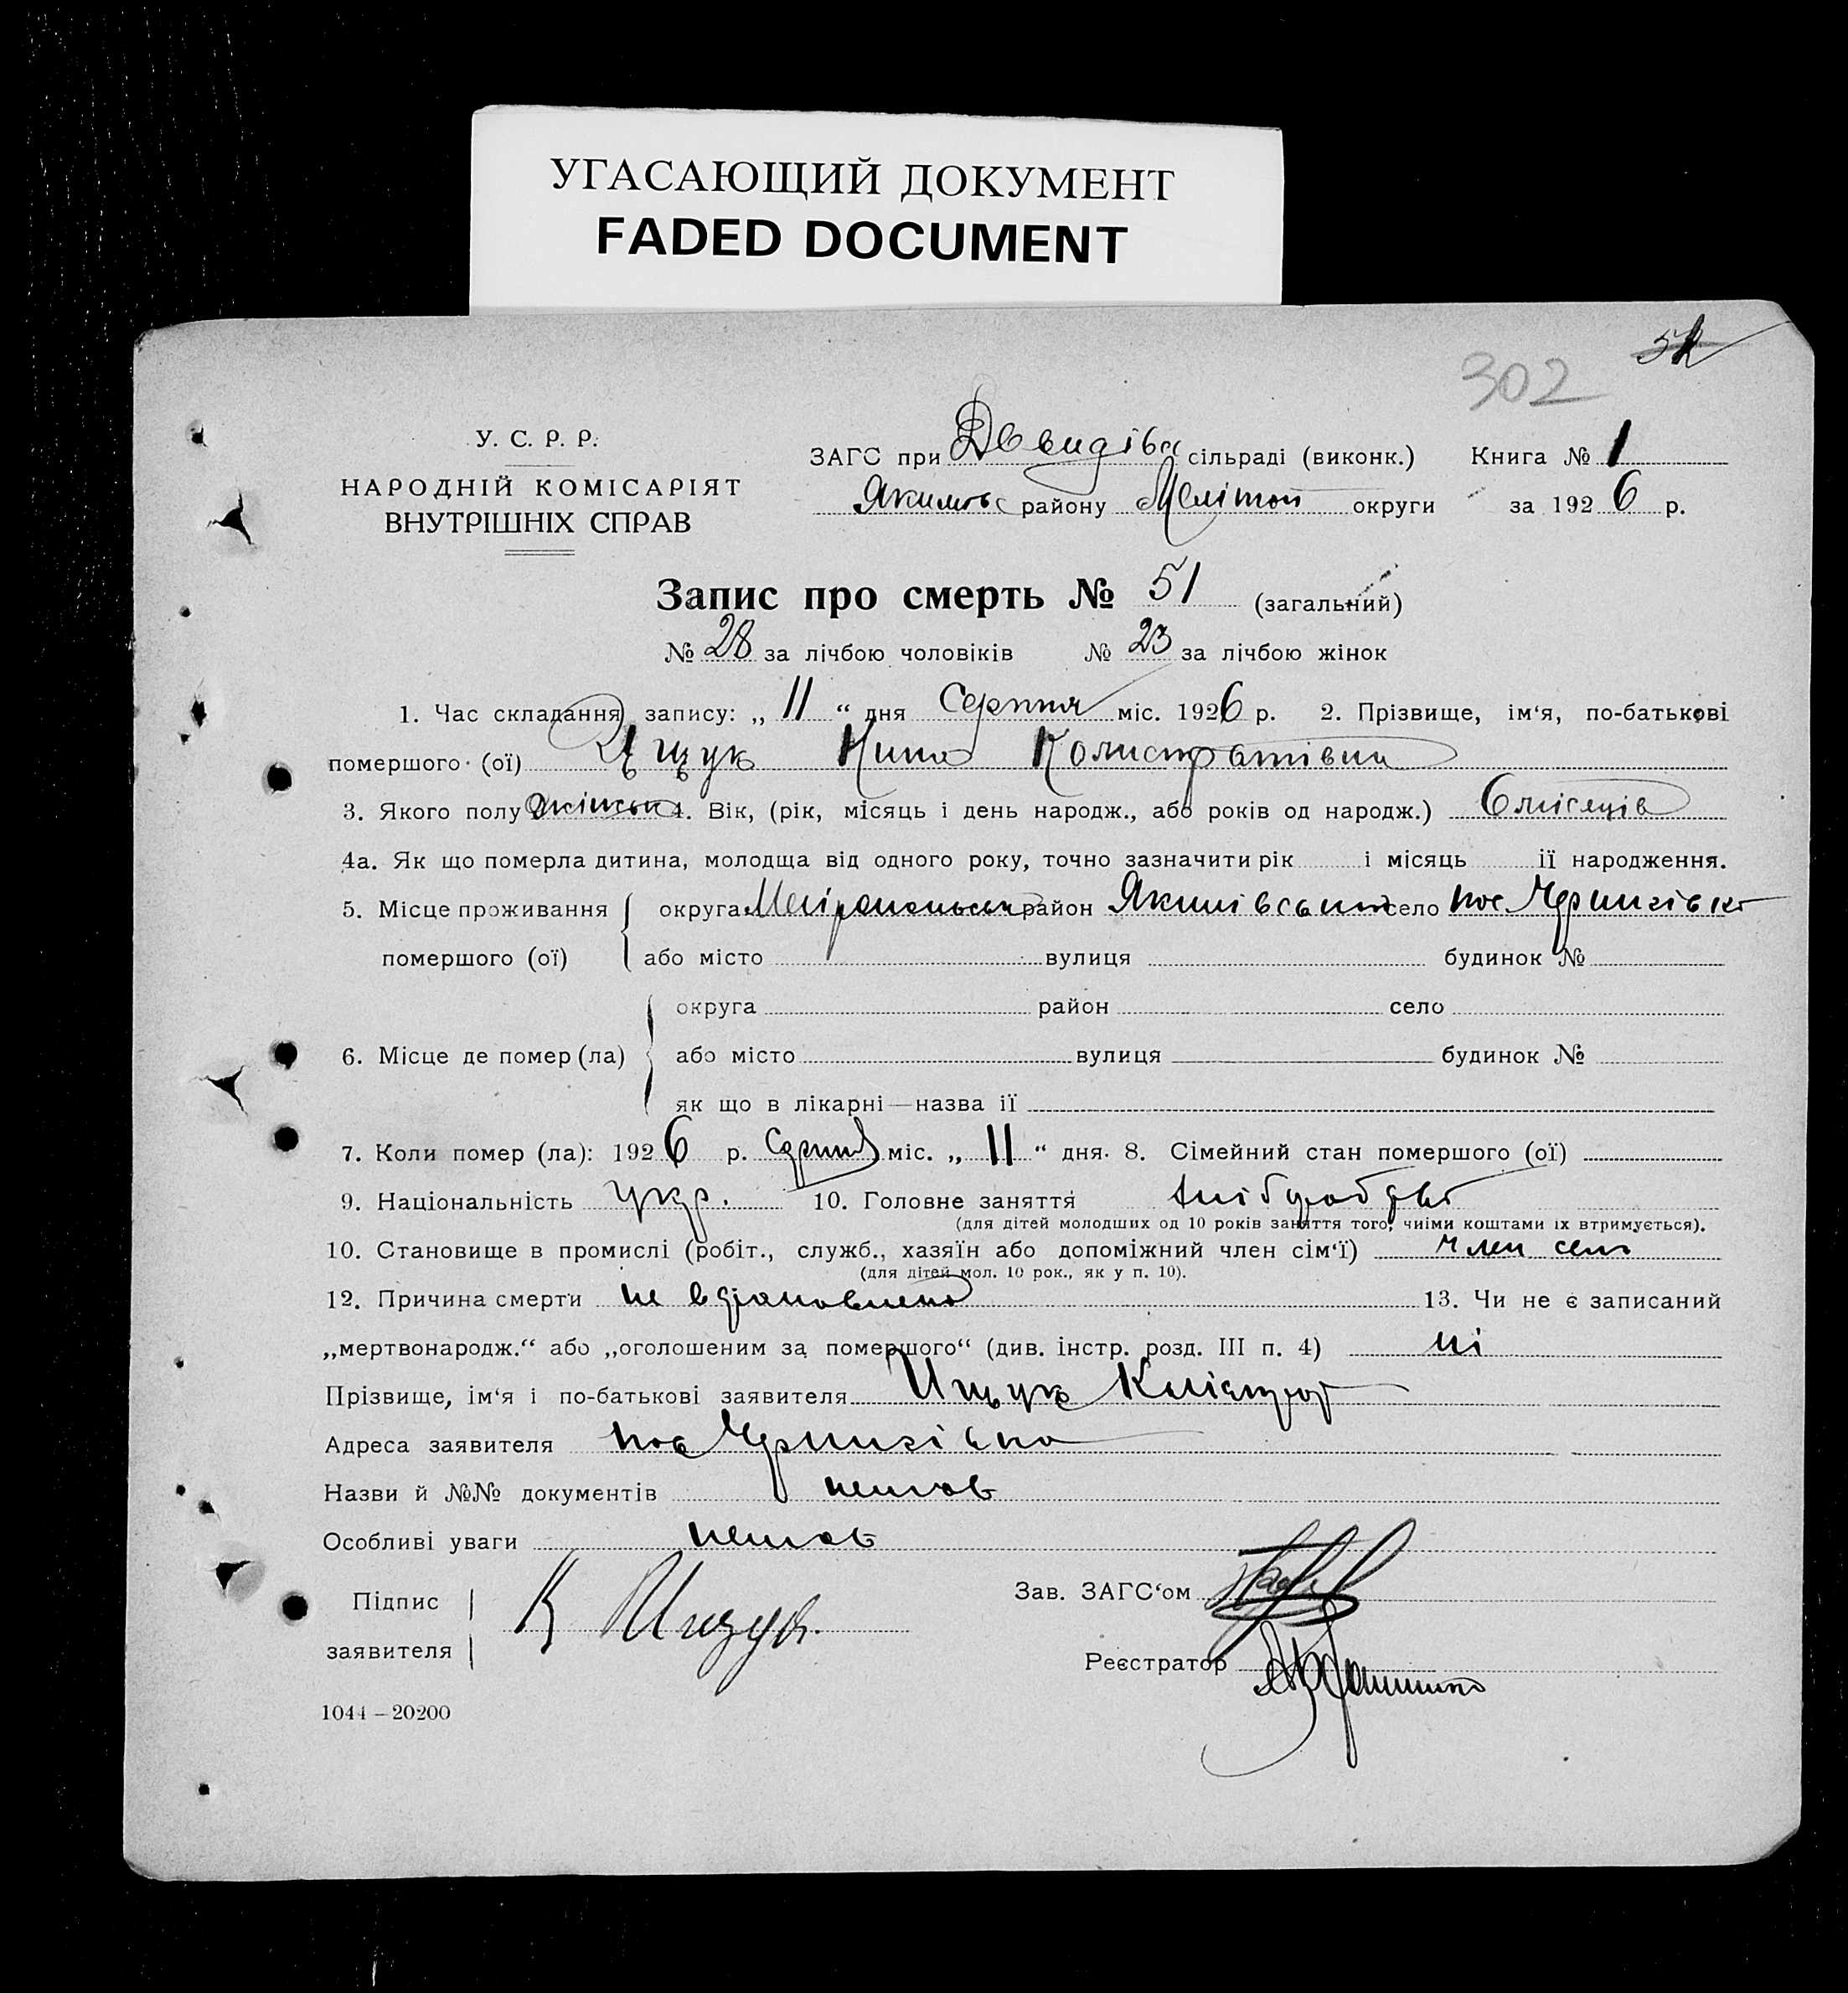 УГАСАЮЩИЙ ДОКУМЕНТ
FADED DOCUMENT
302
У. С. Р. Р.
НАРОДНІЙ КОМІСАРІЯТ
ВНУТРІШНІХ СПРАВ
ЗАГС при сільраді (виконк.) Книга № 1
Якимовс району Мелітоп округи за 1926 р.
Запис про смерть № 51 (загальний)
№ 28 за лічбою чоловіків № 23 за лічбою жінок
1. Час складання запису: „ 11 “ дня Серпня міс. 1926 р. 2. Прізвище, ім‘я, по-батькові
помершого (ої) Іщук Нина Колистратівна
3. Якого полу жіноч 4. Вік, (рік, місяць і день народж., або років од народж.) 6 місяців
4а. Як що померла дитина, молодща від одного року, точно зазначити рік і місяць її народження.
5. Місце проживання округа район Якимівський село пос Чернигівка
помершого (ої) або місто вулиця будинок №
округа район село
6. Місце де помер (ла) або місто вулиця будинок №
як що в лікарні—назва її
7. Коли помер (ла): 1926 р. серпня міс. „ 11 “ дня. 8. Сімейний стан помершого (ої)
9. Національність укр. 10. Головне заняття хлібороб
(для дітей молодших од 10 років заняття того, чиїми коштами їх втримується).
10. Становище в промислі (робіт., служб., хазяїн або допоміжний член сім‘ї) член сем
(для дітей мол. 10 рок., як у п. 10).
12. Причина смерти не 13. Чи не є записаний
„мертвонародж.“ або „оголошеним за помершого“ (див. інстр. розд. III п. 4) ні
Прізвище, ім‘я і по-батькові заявителя Ищук Калістрат
Адреса заявителя пос Чернигівка
Назви й №№ документів немає
Особливі уваги немає
Підпис К Ищук Зав. ЗАГС‘ом
заявителя Реєстратор
1044 – 20200